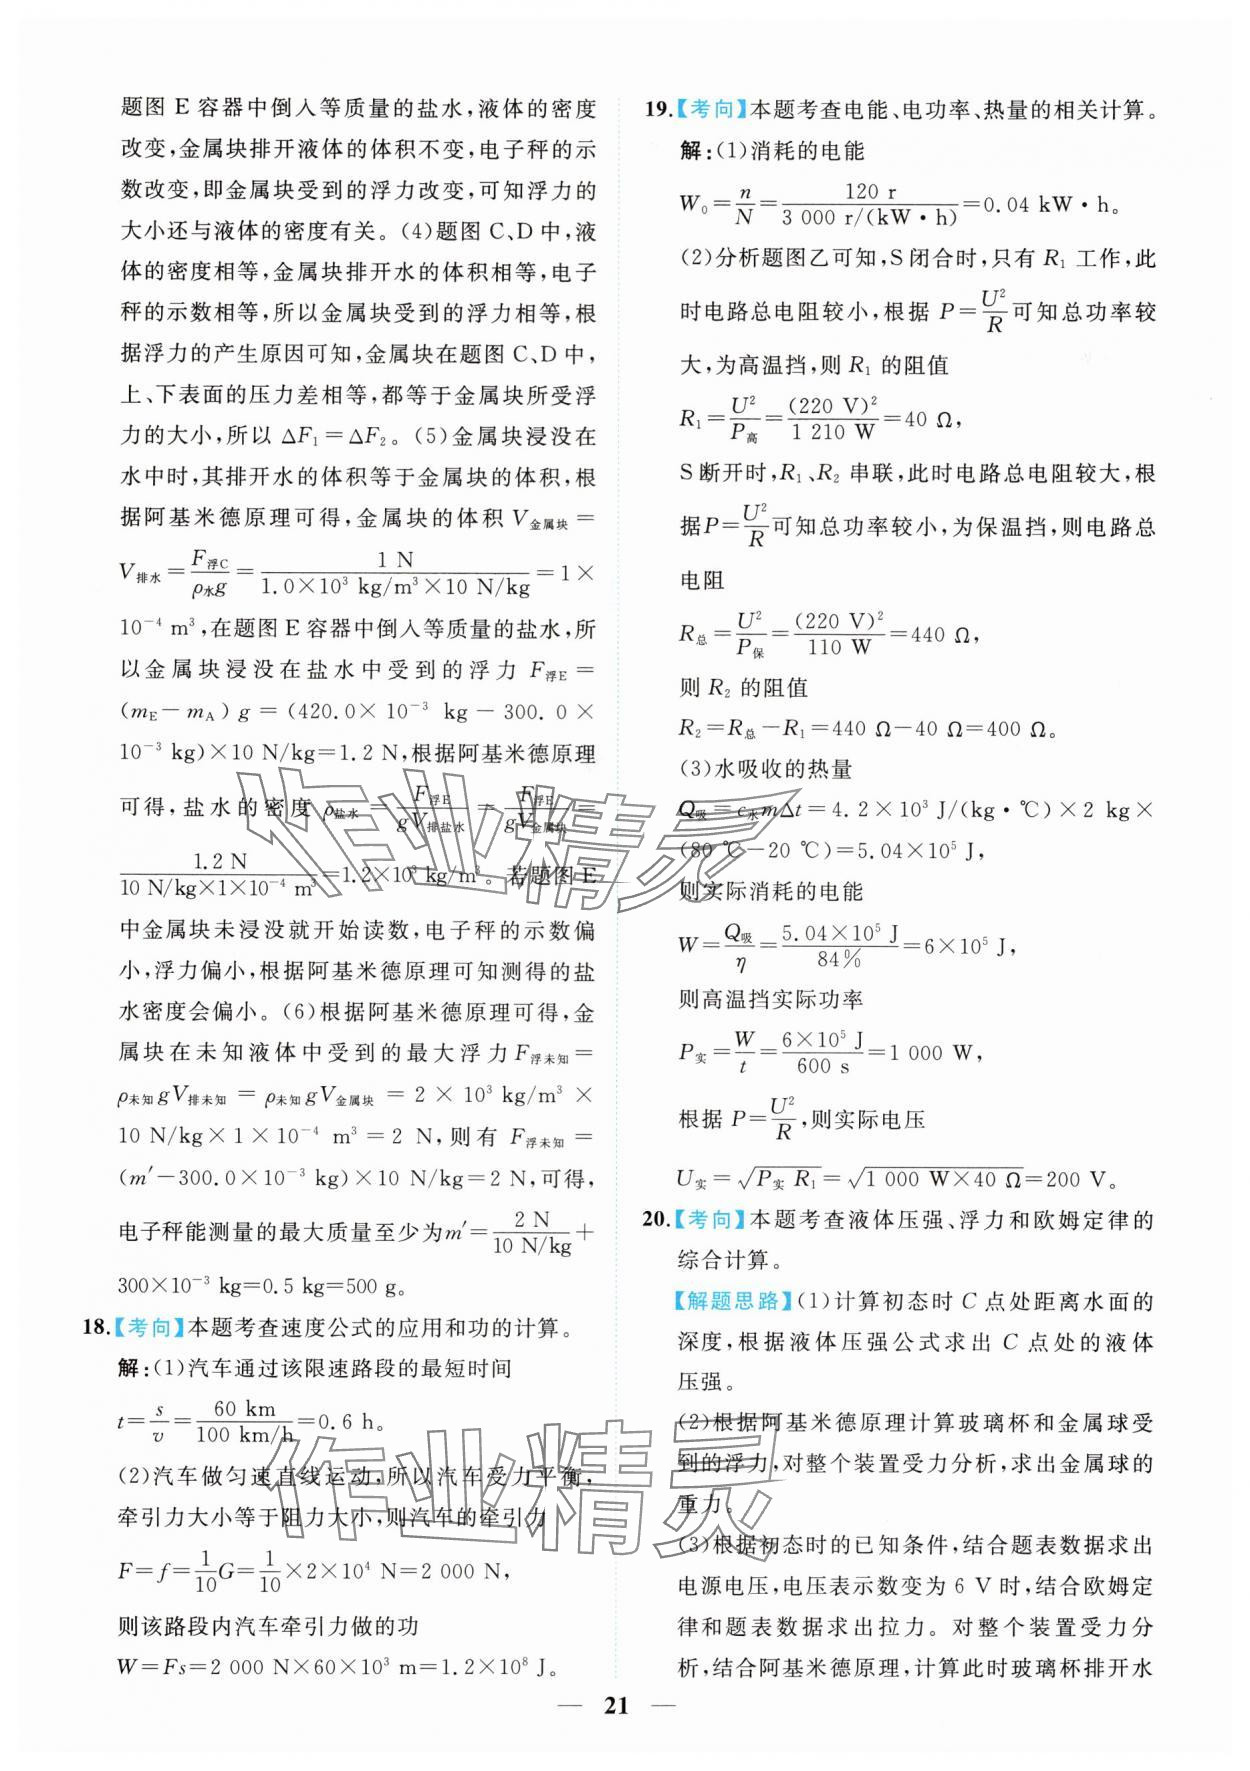 题图 E 容器中倒入等质量的盐水,液体的密度
改变,金属块排开液体的体积不变,电子秤的示
数改变,即金属块受到的浮力改变,可知浮力的
大小还与液体的密度有关。(4)题图 C、D 中,液
体的密度相等,金属块排开水的体积相等,电子
秤的示数相等,所以金属块受到的浮力相等,根
据浮力的产生原因可知,金属块在题图 C、D 中,
上、下表面的压力差相等,都等于金属块所受浮
力的大小,所以 ΔF₁=ΔF₂。(5)金属块浸没在
水中时,其排开水的体积等于金属块的体积,根
据阿基米德原理可得,金属块的体积 V金属块=
V排水=F浮C/ρ水g=1 N/(1.0×10³ kg/m³×10 N/kg)=1×
10⁻⁴ m³,在题图 E 容器中倒入等质量的盐水,所
以金属块浸没在盐水中受到的浮力 F浮E=
(mE-mA)g=(420.0×10⁻³ kg-300.0×
10⁻³ kg)×10 N/kg=1.2 N,根据阿基米德原理
可得,盐水的密度 ρ盐水=F浮E/gV排盐水=F浮E/gV金属块=
1.2 N/(10 N/kg×1×10⁻⁴ m³)=1.2×10³ kg/m³。若题图 E
中金属块未浸没就开始读数,电子秤的示数偏
小,浮力偏小,根据阿基米德原理可知测得的盐
水密度会偏小。(6)根据阿基米德原理可得,金
属块在未知液体中受到的最大浮力 F浮未知=
ρ未知gV排未知=ρ未知gV金属块=2×10³ kg/m³×
10 N/kg×1×10⁻⁴ m³=2 N,则有 F浮未知=
(m′-300.0×10⁻³ kg)×10 N/kg=2 N,可得,
电子秤能测量的最大质量至少为 m′=2 N/(10 N/kg)+
300×10⁻³ kg=0.5 kg=500 g。
18.【考向】本题考查速度公式的应用和功的计算。
解:(1)汽车通过该限速路段的最短时间
t=s/v=60 km/(100 km/h)=0.6 h。
(2)汽车做匀速直线运动,所以汽车受力平衡,
牵引力大小等于阻力大小,则汽车的牵引力
F=f=1/10G=1/10×2×10⁴ N=2 000 N,
则该路段内汽车牵引力做的功
W=Fs=2 000 N×60×10³ m=1.2×10⁸ J。
19.【考向】本题考查电能、电功率、热量的相关计算。
解:(1)消耗的电能
W₀=n/N=120 r/(3 000 r/(kW·h))=0.04 kW·h。
(2)分析题图乙可知,S闭合时,只有 R₁ 工作,此
时电路总电阻较小,根据 P=U²/R可知总功率较
大,为高温挡,则 R₁ 的阻值
R₁=U²/P高=(220 V)²/1 210 W=40 Ω,
S 断开时,R₁、R₂ 串联,此时电路总电阻较大,根
据P=U²/R可知总功率较小,为保温挡,则电路总
电阻
R总=U²/P保=(220 V)²/110 W=440 Ω,
则 R₂ 的阻值
R₂=R总-R₁=440 Ω-40 Ω=400 Ω。
(3)水吸收的热量
Q吸=c水mΔt=4.2×10³ J/(kg·℃)×2 kg×
(80 ℃-20 ℃)=5.04×10⁵ J,
则实际消耗的电能
W=Q吸/η=5.04×10⁵ J/84%=6×10⁵ J,
则高温挡实际功率
P实=W/t=6×10⁵ J/600 s=1 000 W,
根据 P=U²/R,则实际电压
U实=√(P实 R₁)=√(1 000 W×40 Ω)=200 V。
20.【考向】本题考查液体压强、浮力和欧姆定律的
综合计算。
【解题思路】(1)计算初态时 C 点处距离水面的
深度,根据液体压强公式求出 C 点处的液体
压强。
(2)根据阿基米德原理计算玻璃杯和金属球受
到的浮力,对整个装置受力分析,求出金属球的
重力。
(3)根据初态时的已知条件,结合题表数据求出
电源电压,电压表示数变为 6 V 时,结合欧姆定
律和题表数据求出拉力。对整个装置受力分
析,结合阿基米德原理,计算此时玻璃杯排开水
— 21 —
作业精灵
作业精灵